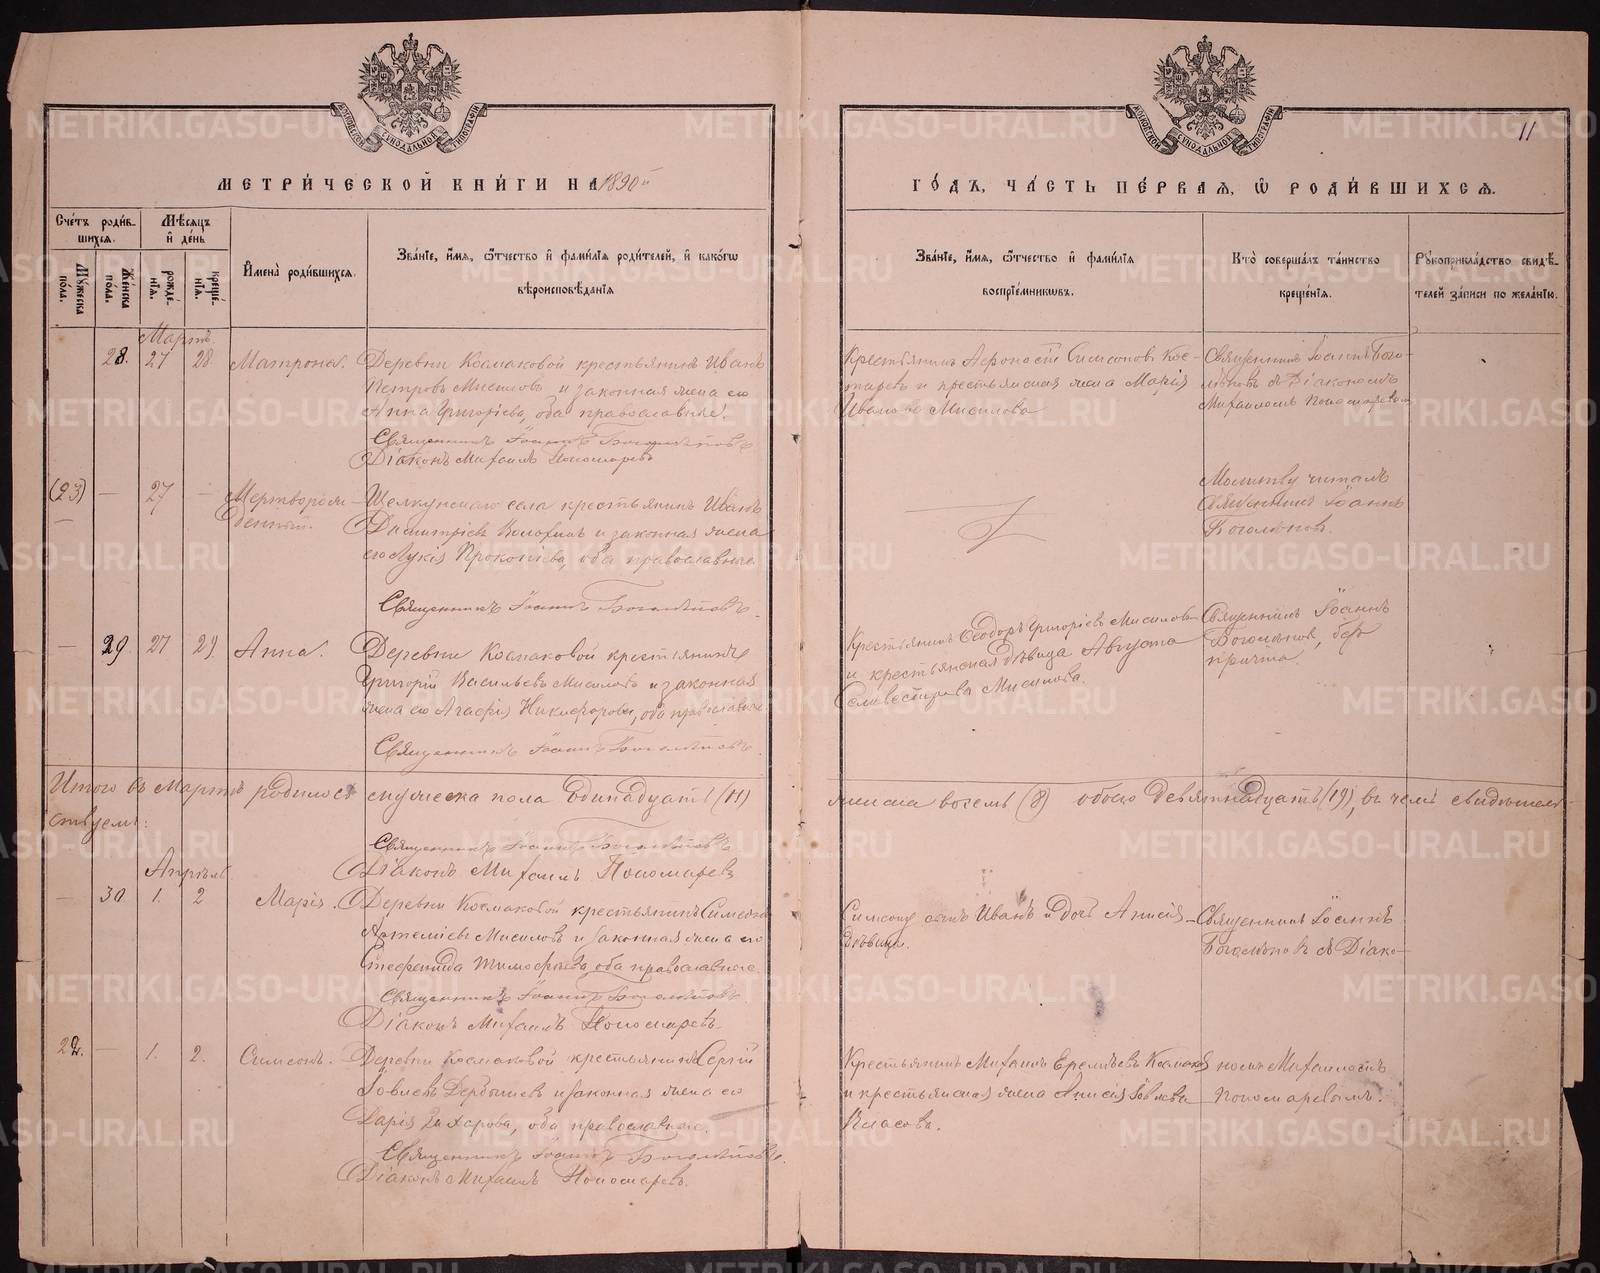 11
МЕТРИ́ЧЕСКОЙ КНИ́ГИ НА 1890й
ГО́ДЪ, ЧА́СТЬ ПЕ́РВАЯ, Ѡ РОДИ́ВШИХСЯ.
Сче́тъ роди́в-
шихся.
Му́жеска по́ла.
Же́нска по́ла.
Мѣ́сяцъ
и҆ де́нь
рожде́-
нїя.
креще́-
нїя.
И҆мена̀ роди́вшихся.
Зва́нїе, и҆́мя, ѻ҆́тчество и҆ фами́лїя роди́телей, и҆ како́гѡ
вѣроисповѣ́данїя
Зва́нїе, и҆́мя, ѻ҆́тчество и҆ фами́лїя
воспрїе́мниковъ.
Кто̀ соверша́лъ та́инство
креще́нїя.
Рꙋкоприкла́дство свидѣ́-
телей за́писи по жела́нїю.
Мартъ.
28. 27 28. Матрона. Деревни Космаковой крестьянинъ Иванъ
Петровъ Мисиловъ и законная жена его
Анна Григоріева, оба православные.
Священникъ Іоаннъ Боголѣповъ
Діаконъ Михаилъ Пономаревъ
Крестьянинъ Симеоновъ Кос-
таревъ и крестьянская жена Марія
Иванова Мисилова
Священникъ Іоаннъ Бого-
лѣповъ съ Діакономъ
Михаиломъ Пономаревымъ
(23) — 27 — Мертворож-
денный.
Щелкунскаго села крестьянинъ Иванъ
Димитріевъ и законная жена
его Лукія Прокопіева, оба православные.
Священникъ Іоаннъ Боголѣповъ.
Молитву читалъ
Священникъ Іоаннъ
Боголѣповъ.
— 29 27 29. Анна. Деревни Космаковой крестьянинъ
Григорій Васильевъ Мисиловъ и законная
жена его Агафія Никифорова, оба православные
Священникъ Іоаннъ Боголѣповъ.
Крестьянинъ Ѳеодоръ Григоріевъ Мисиловъ
и крестьянская дѣвица Августа
Селивестрова Мисилова.
Священникъ Іоаннъ
Боголѣповъ, безъ
причта.
Итого въ Мартѣ родилось мужеска пола одинадцать (11)
женска восемь (8) обоего девятнадцать (19), въ чемъ свидѣтель-
ствуемъ:
Священникъ Іоаннъ Боголѣповъ
Діаконъ Михаилъ Пономаревъ
Апрѣль
— 30 1. 2 Марія. Деревни Космаковой крестьянинъ Симеонъ
Артеміевъ Мисиловъ и законная жена его
Стефанида Тимофѣева, оба православные.
Священникъ Іоаннъ Боголѣповъ
Діаконъ Михаилъ Пономаревъ.
сынъ Иванъ и дочь Анисія
дѣвица.
Священникъ Іоаннъ
Боголѣповъ съ Діако-
22. — 1. 2. Симеонъ. Деревни Космаковой крестьянинъ Сергій
Іовлевъ Дербышевъ и законная жена его
Дарія Захарова, оба православные.
Священникъ Іоаннъ Боголѣповъ.
Діаконъ Михаилъ Пономаревъ.
Крестьянинъ Михаилъ Еремѣевъ Космаковъ
и крестьянская жена Анисія Іовлева
Власова.
номъ Михаиломъ
Пономаревымъ.
METRIKI.GASO-URAL.RU